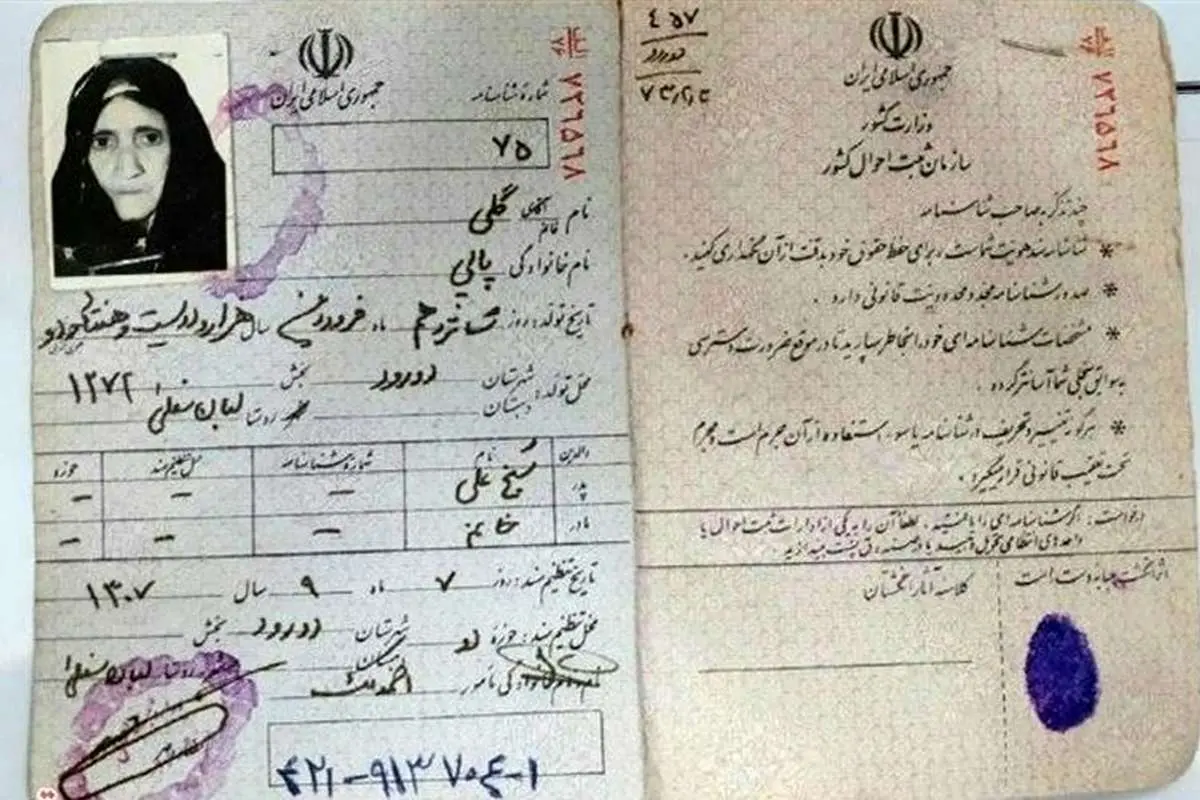 ۴۵۷
دورود
جمهوری اسلامی ایران
وزارت کشور
سازمان ثبت احوال کشور
چند تذکر به صاحب شناسنامه
* شناسنامه سند هویت شماست، برای حفظ حقوق خود بدقت از آن نگهداری کنید.
* صدور شناسنامه مجدد محدودیت قانونی دارد.
* مشخصات شناسنامه‌ای خود را بخاطر بسپارید تا در موقع ضرورت دسترسی
به سوابق سجلی شما آسانتر گردد.
* هرگونه تغییر و تحریف در شناسنامه یا سوء استفاده از آن جرم است و مجرم
تحت تعقیب قانونی قرار میگیرد.
درخواست: اگر شناسنامه‌ای را یافتید، لطفاً آن را به یکی از ادارات ثبت احوال یا
واحدهای انتظامی تحویل دهید یا در صندوق پست بیندازید
اثر انگشت چهار دست است
کلاسه آثار انگشتان
۷۲۶۵۶۸
جمهوری اسلامی ایران
شمارهٔ شناسنامه
۷۵
۷۲۶۵۶۸
نام آقای خانم گلی
نام خانوادگی پالی
تاریخ تولد: روز شانزدهم ماه فروردین سال هزار و دویست و هفتاد و دو
محل تولد: شهرستان دورود بخش ۱۲۷۲
دهستان روستا لعبان سفلی
والدین نام شماره شناسنامه محل تنظیم سند حوزه
پدر شیخ علی – – –
مادر خانم – – –
تاریخ تنظیم سند: روز ۷ ماه ۹ سال ۱۳۰۷
محل تنظیم سند: حوزه دو شهرستان دورود بخش
روستا لعبان سفلی
نام و نام خانوادگی مامور
۴۲۱-۹۱۳۷۰۴-۱